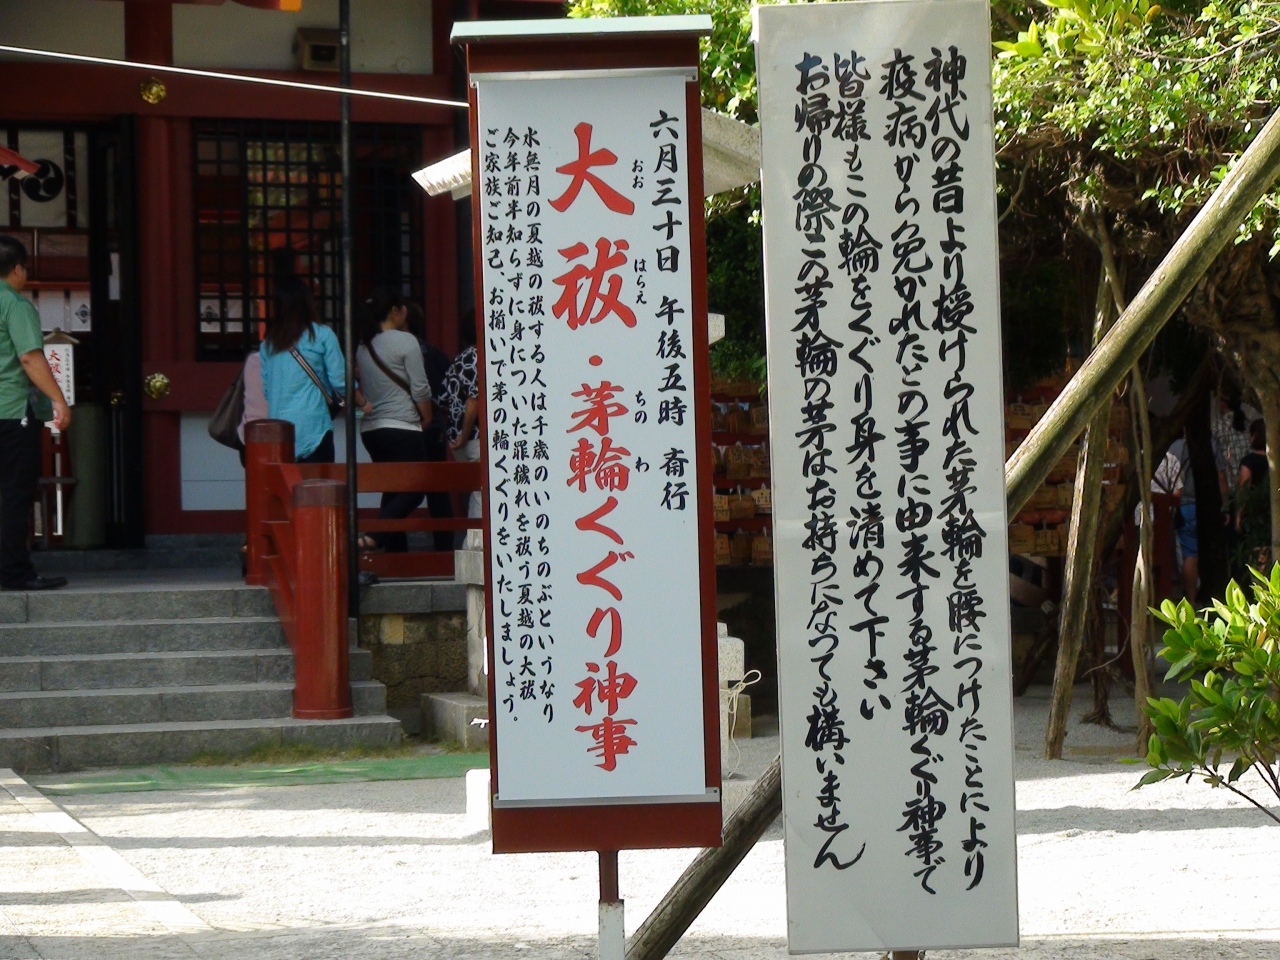 神代の昔より授けられた茅輪を腰につけたことにより
疫病から免かれたとの事に由来する茅輪ぐり神事で
皆様もこの輪をくぐり身を清めて下さい
お帰りの際この茅輪の茅はお持ちになっても構いません
六月三十日 午後五時 斎行
おお はらえ ちの わ
大祓・茅輪くぐり神事
水無月の夏越の祓する人は千歳のいのちのぶというなり
今年前半知らずに身についた罪穢れを祓う夏越の大祓
ご家族ご知己、お揃いで茅の輪くぐりをいたしましょう。